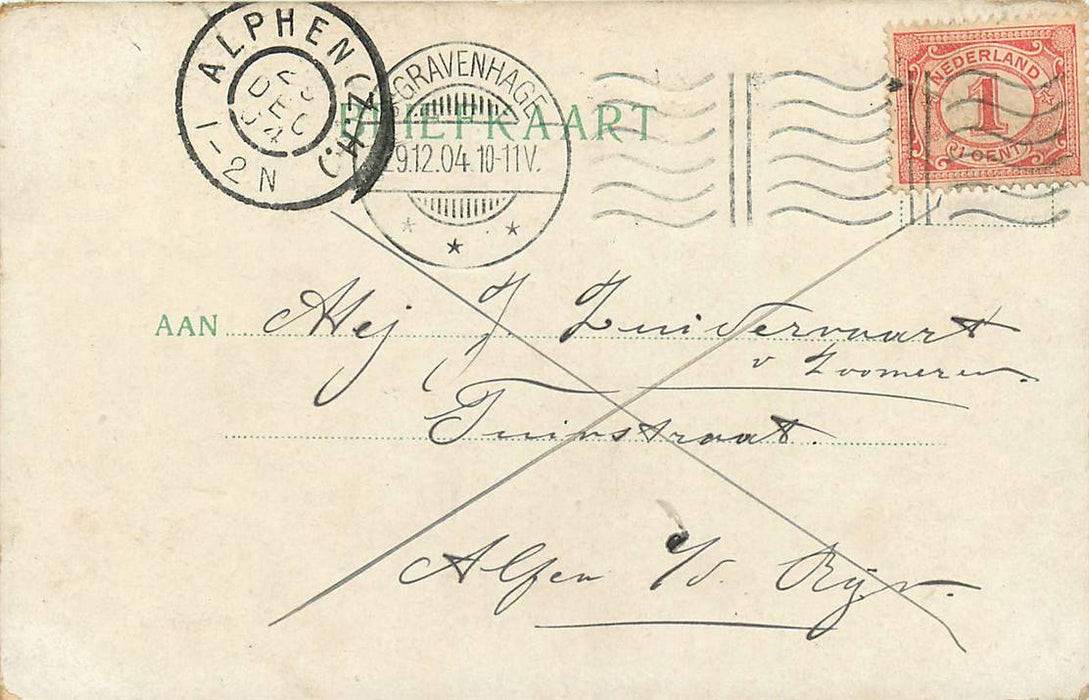 ALPHEN (Z.H.)
DEC
04
1-2N
'SGRAVENHAGE
29.12.04 10-11V.
NEDERLAND
1
(1 CENT)
BRIEFKAART
AAN Mej J. Zuidervaart
v Zoomeren.
Tuinstraat.
Alfen a/d. Rijn.